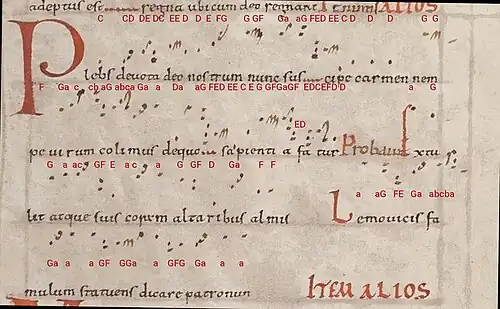 adeptus est regna ubicum deo regnant ALIOS
C CD DE DC EE D D E FG G GF Ga aG FED EE C D D D G G
Plebs devota deo nostrum nunc sus cipe carmen nem
F Ga c cb aG abca Ga a Da aG FED EE C E G GFGaGF EDCEFD D a G
ED
pe virum colimus dequo sapienti a fa tur
G a ac GF E a c a G GF D Ga F F a aG FE Ga abcba
lit atque suis altaribus almis Lemovicis fa
Ga a a GF GGa a GFG Ga a a
mulum statuens dicare patronum ITEM ALIOS